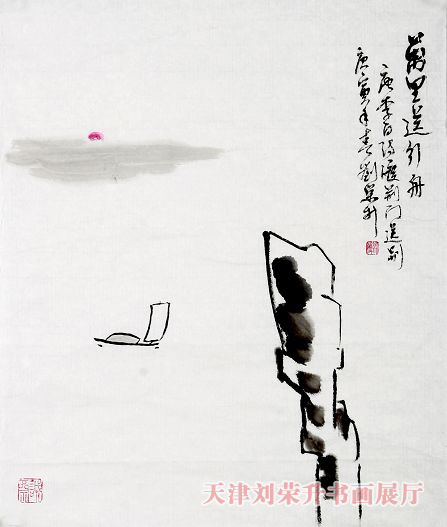 萬里送行舟
唐李白诗渡荆门送别
庚寅年春劉荣升
天津刘荣升书画展厅